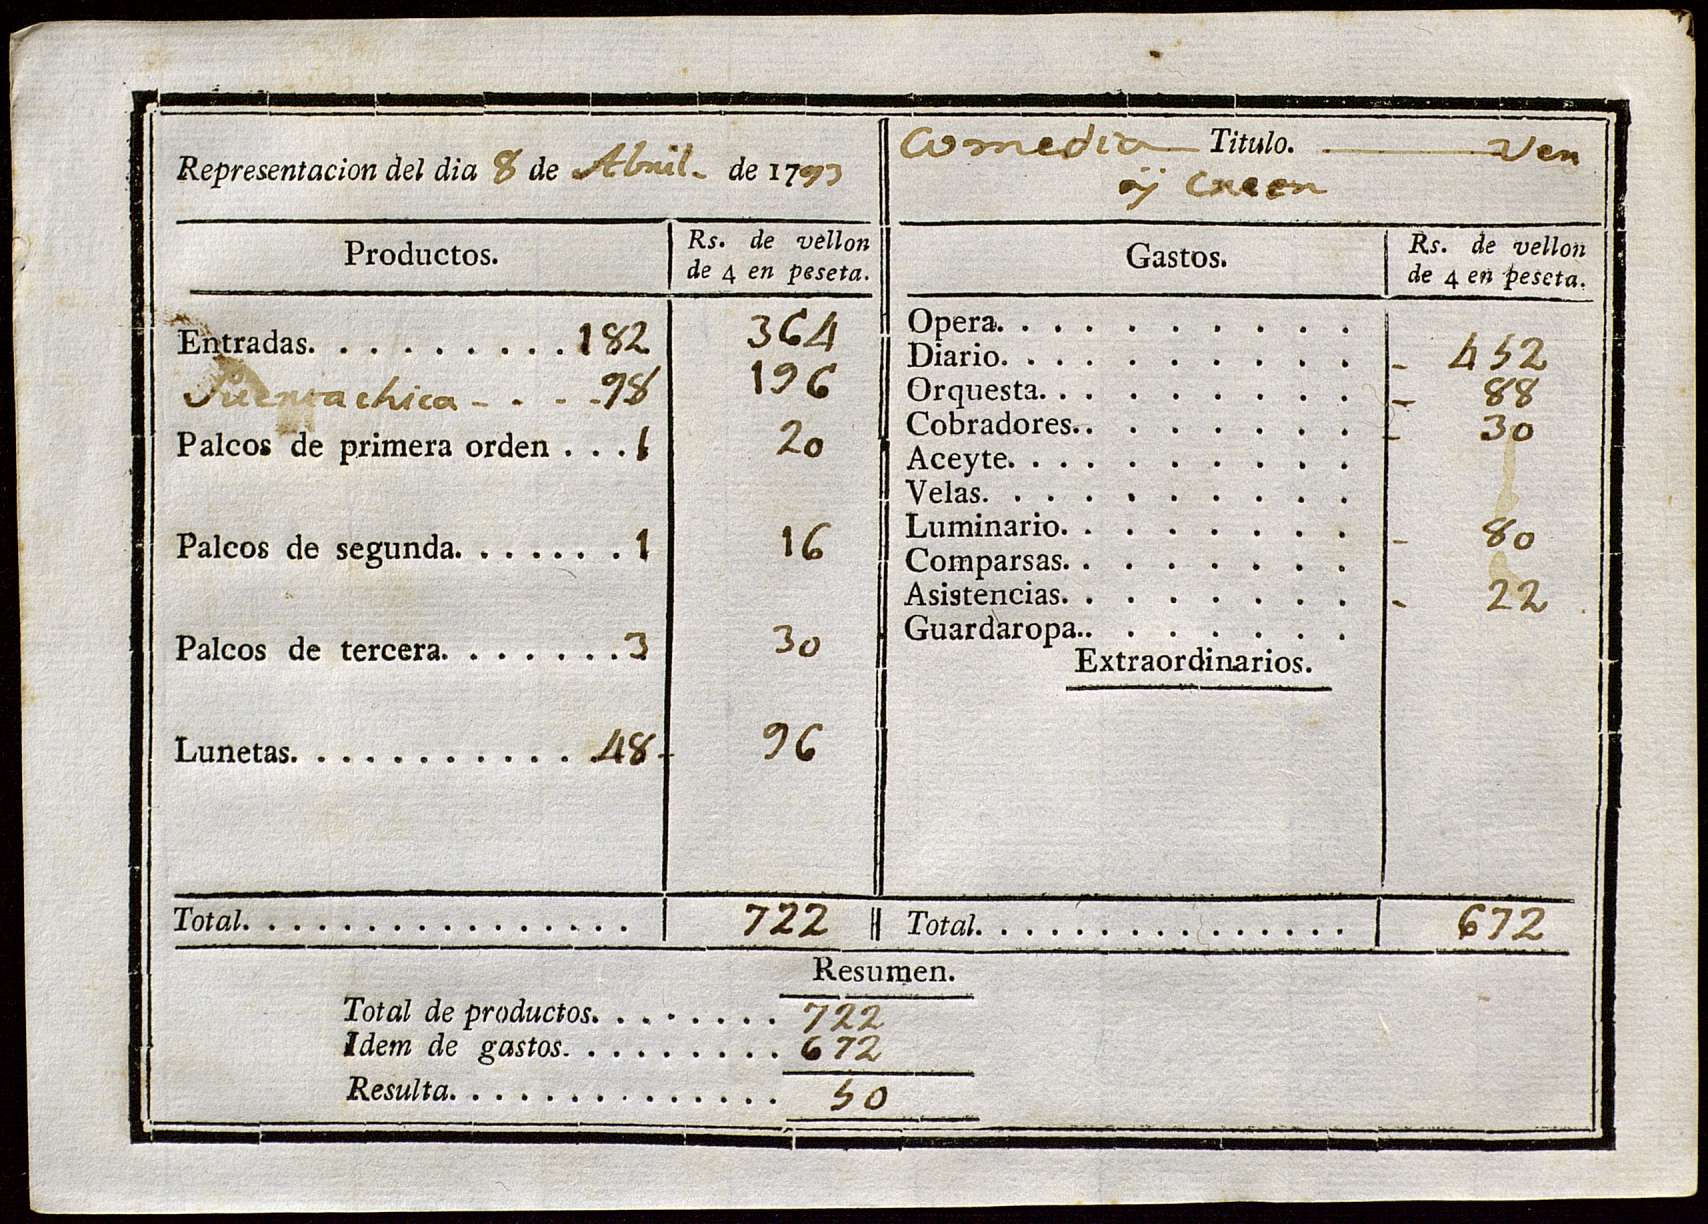 Representacion del dia 8 de Abril. de 1793
Comedia Titulo. Ver
ÿ Creer
Productos.
Rs. de vellon
de 4 en peseta.
Entradas. . . . . . . . . . 182 364
Puerta chica - . . - . 98 196
Palcos de primera orden . . . 1 20
Palcos de segunda. . . . . . . 1 16
Palcos de tercera. . . . . . . 3 30
Lunetas. . . . . . . . . . . . 48 - 96
Total. . . . . . . . . . . . . . . . 722
Gastos.
Rs. de vellon
de 4 en peseta.
Opera. . . . . . . . . .
Diario. . . . . . . . . . - 452
Orquesta. . . . . . . . . - 88
Cobradores. . . . . . . . - 30
Aceyte. . . . . . . . . .
Velas. . . . . . . . . .
Luminario. . . . . . . . - 80
Comparsas. . . . . . . .
Asistencias. . . . . . . . - 22
Guardaropa. . . . . . . .
Extraordinarios.
Total. . . . . . . . . . . . . . . 672
Resumen.
Total de productos. . . . . . . . 722
Idem de gastos. . . . . . . . . 672
Resulta. . . . . . . . . . . . . . 50